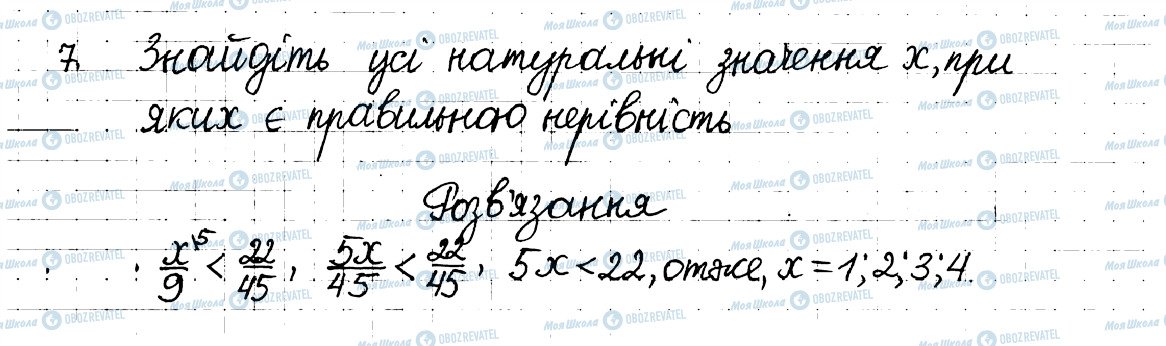 7 Знайдіть усі натуральні значення x, при
яких є правильною нерівність
Розв'язання
x/9 \5 < 22/45, 5x/45 < 22/45, 5x < 22, отже, x = 1; 2; 3; 4.